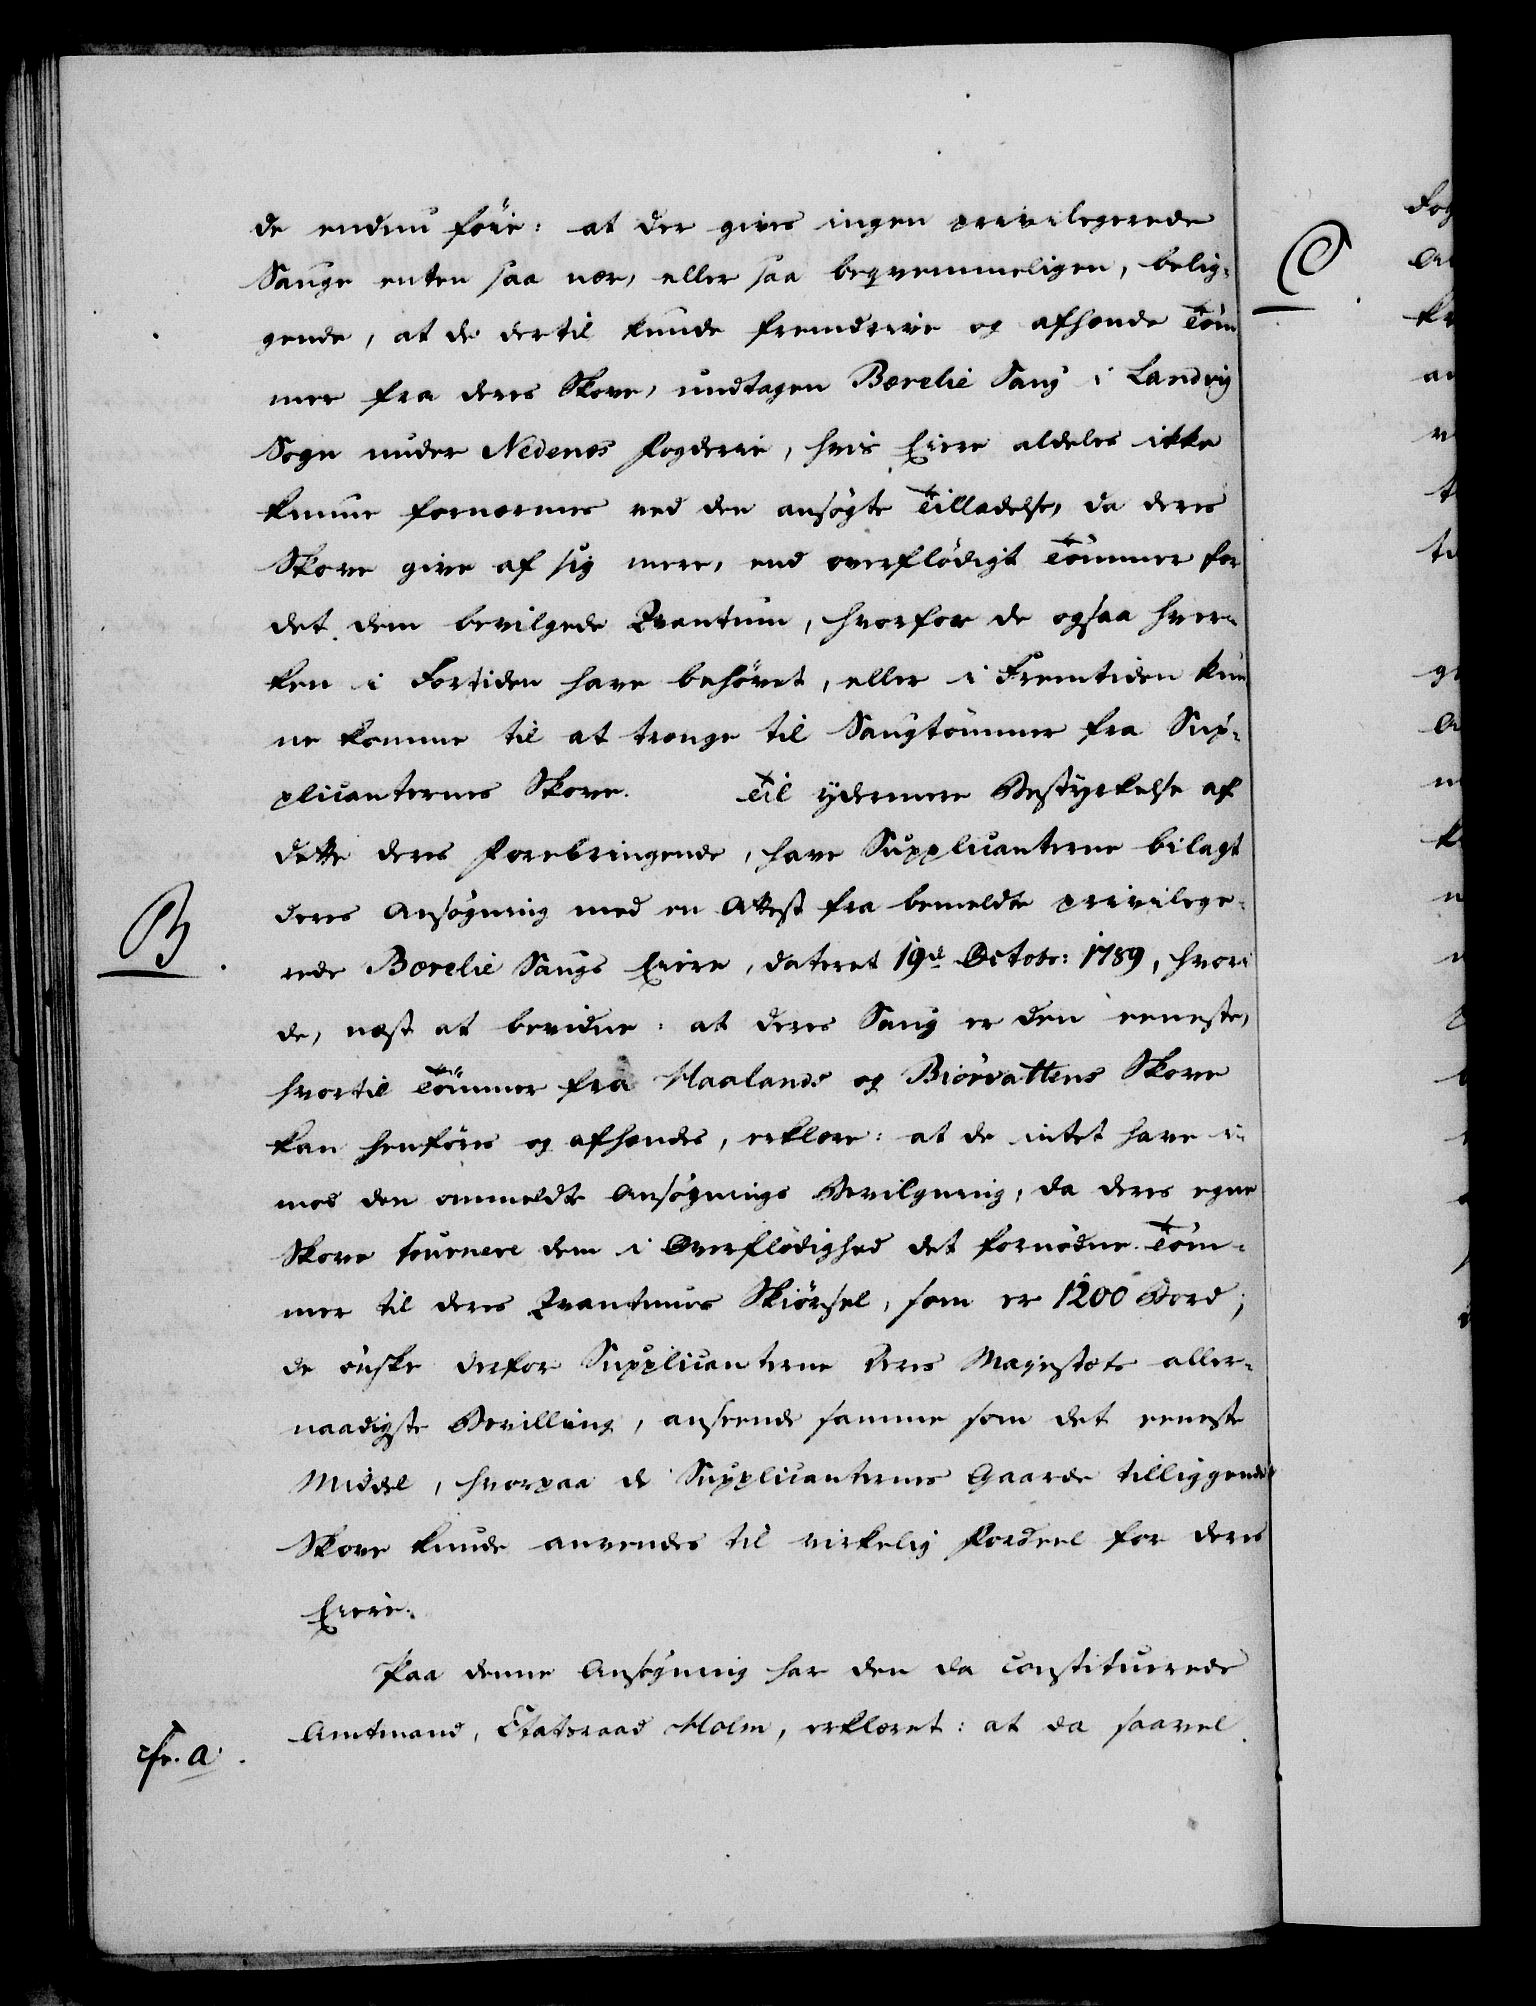 de endnu föie: at der gives ingen privilegerede
Sauge enten saa nær, eller saa beqvemmeligen, belig-
gende, at de dertil kunde fremdrive og afhænde Töm
mer fra deres Skove, undtagen Bærelie Saug i Landvig
Sogn under Nedenes Fogderie, hvis Eiere aldeles ikke
kunne fornærmes ved den ansøgte Tilladelse, da deres
Skove give af sig mere, end overflödigt Tömmer for
det dem bevilgede Qvantum, hvorfor de ogsaa hver-
ken i Fortiden have behövet, eller i Fremtiden kun
ne komme til at trænge til Saugtömmer fra Sup-
plicanternes Skove. Til ydermere Bestyrkelse af
dette deres Forebringende, have Supplicanterne bilagt
deres Ansøgning med en Attest fra bemeldte privilege-
B
rede Bærelie Saugs Eiere, dateret 19de Octobr: 1789, hvori
de, næst at bevidne: at deres Saug er den eeneste,
hvortil Tömmer fra Maalands og Biorvattens Skove
kan henföres og afhændes, erklære: at de intet have i-
mod den ommeldte Ansøgnings Bevilgning, da deres egne
Skove fournere dem i Overflödighed det fornødne Töm-
mer til deres Qvantums Skiörsel, som er 1200 Bord;
de önske derfor Supplicanterne Deres Majestæts aller-
naadigste Bevilling, anseende samme som det eeneste
Middel, hvorpaa de Supplicanternes Gaarde tilliggende
Skove kunde anvendes til virkelig Fordeel for deres
Eiere.
Paa denne Ansøgning har den da constituerede
Amtmand, Etatsraad Holm, erklæret: at da saavel
cfr. a.